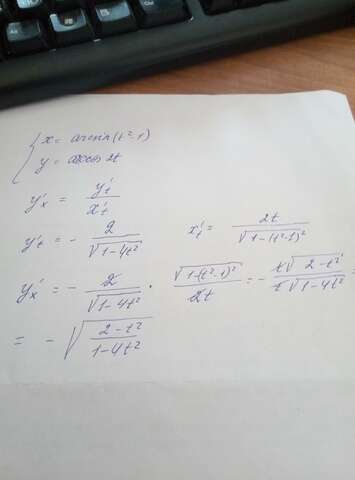 { x = arcsin(t²-1)
y = arccos 2t
y'x = y't / x't
y't = - 2 / √(1-4t²)    x't = 2t / √(1-(t²-1)²)
y'x = - 2 / √(1-4t²) · √(1-(t²-1)²) / 2t = - t√(2-t²) / t√(1-4t²) =
= - √((2-t²) / (1-4t²))